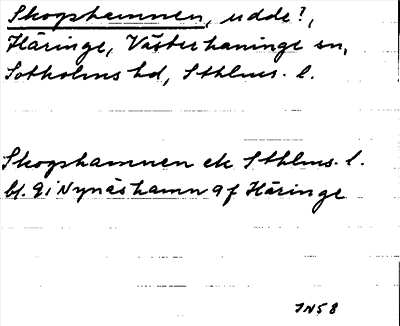 Skogshamnen, udde?,
Häringe, Västerhaninge sn,
Sotholms hd, Sthlms. l.
Skogshamnen ek Sthlms. l.
bl. 9 i Nynäshamn 9f Häringe
JN58